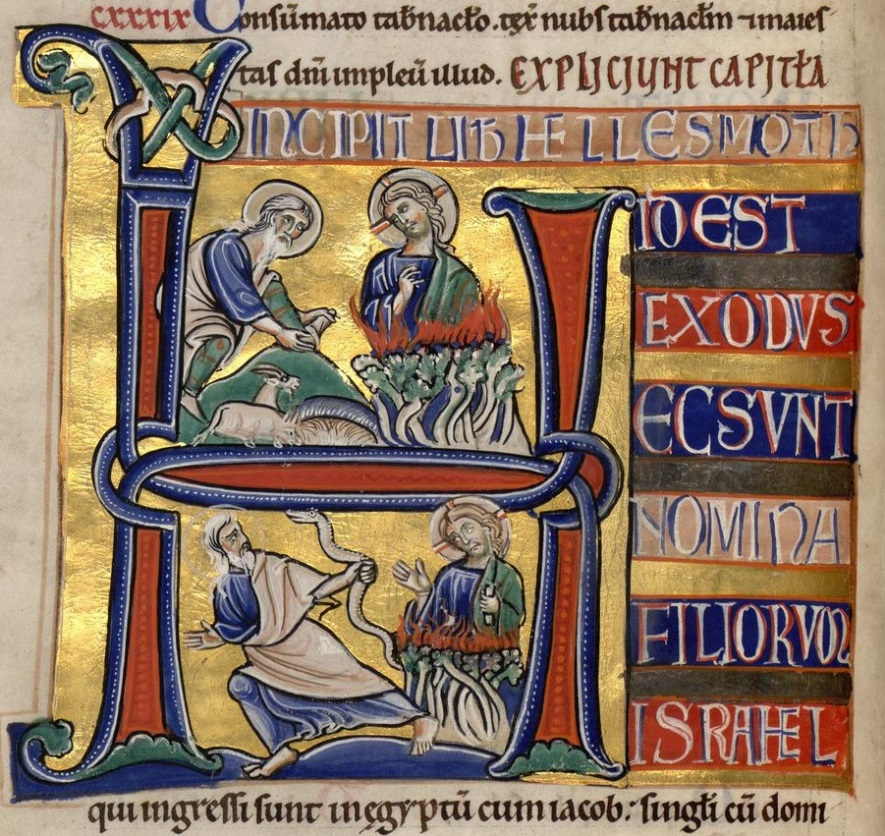 cxxxix Consūmato tab̄nacło. tex̄ nubs tab̄nacłm ⁊ maies
tas dn̄i impleū illud. EXPLICIUNT CAPITŁA
INCIPIT LIB̄ HELLESMOTH
ID EST
EXODVS
H
EC SVNT
NOMINA
FILIORVM
ISRAHEL
qui ingressi sunt in ęgyptū cum iacob: singłi cū domi